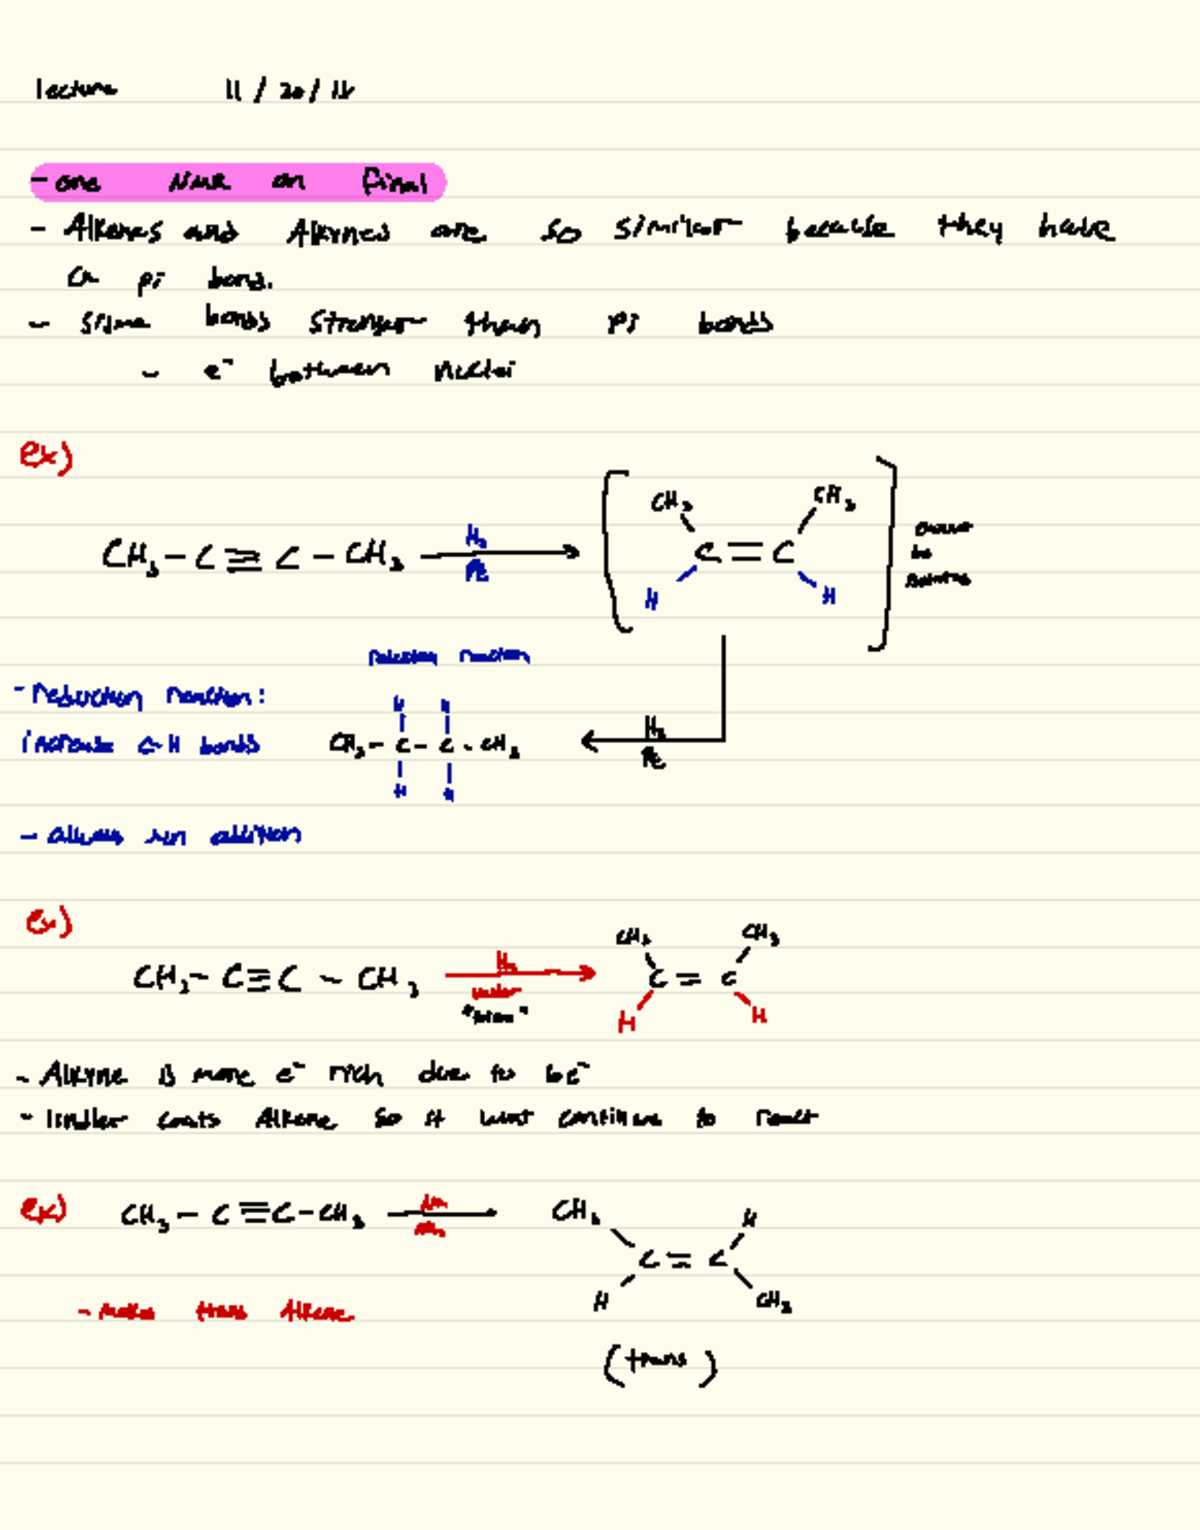 lecture 11/20/
- one NMR on final
- Alkenes and Alkynes are so similar because they have
a pi bond.
- sigma bonds stronger than pi bonds
- e⁻ between nuclei
ex)
CH₃ - C ≡ C - CH₃ H₂ Pt
CH₃ CH₃
C = C
H H
cannot be
reduction reaction
- reduction reaction:
increase C-H bonds
H H
CH₃ - C - C - CH₃
H H
H₂ Pt
- always syn addition
ex)
CH₃ - C ≡ C - CH₃ H₂
CH₃ CH₃
C = C
H H
- Alkyne is more e⁻ rich due to 6e⁻
- lindlar coats Alkene so it wont continue to react
ex) CH₃ - C ≡ C - CH₃
CH₃ H
C = C
H CH₃
- make trans Alkene
(trans)